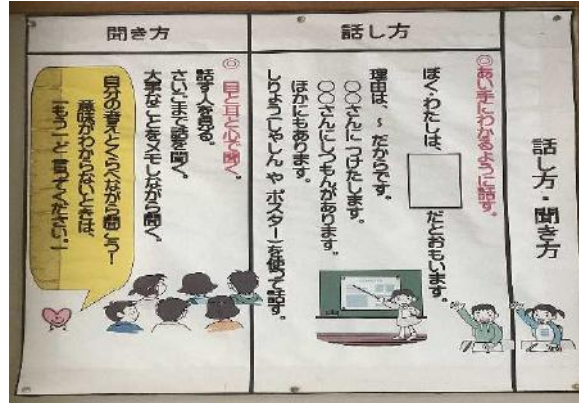 話し方・聞き方
話し方
◎あい手にわかるように話す。
ぼく・わたしは、
だとおもいます。
理由は、~だからです。
○○さんにつけたします。
○○さんにしつもんがあります。
ほかにもあります。
しりょう(しゃしんやポスター)を使って話す。
聞き方
◎目と耳と心で聞く。
話す人を見る。
さいごまで話を聞く。
大事なことをメモしながら聞く。
自分の考えとくらべながら聞こう!
意味がわからないときは、
「もう一ど言ってください。」